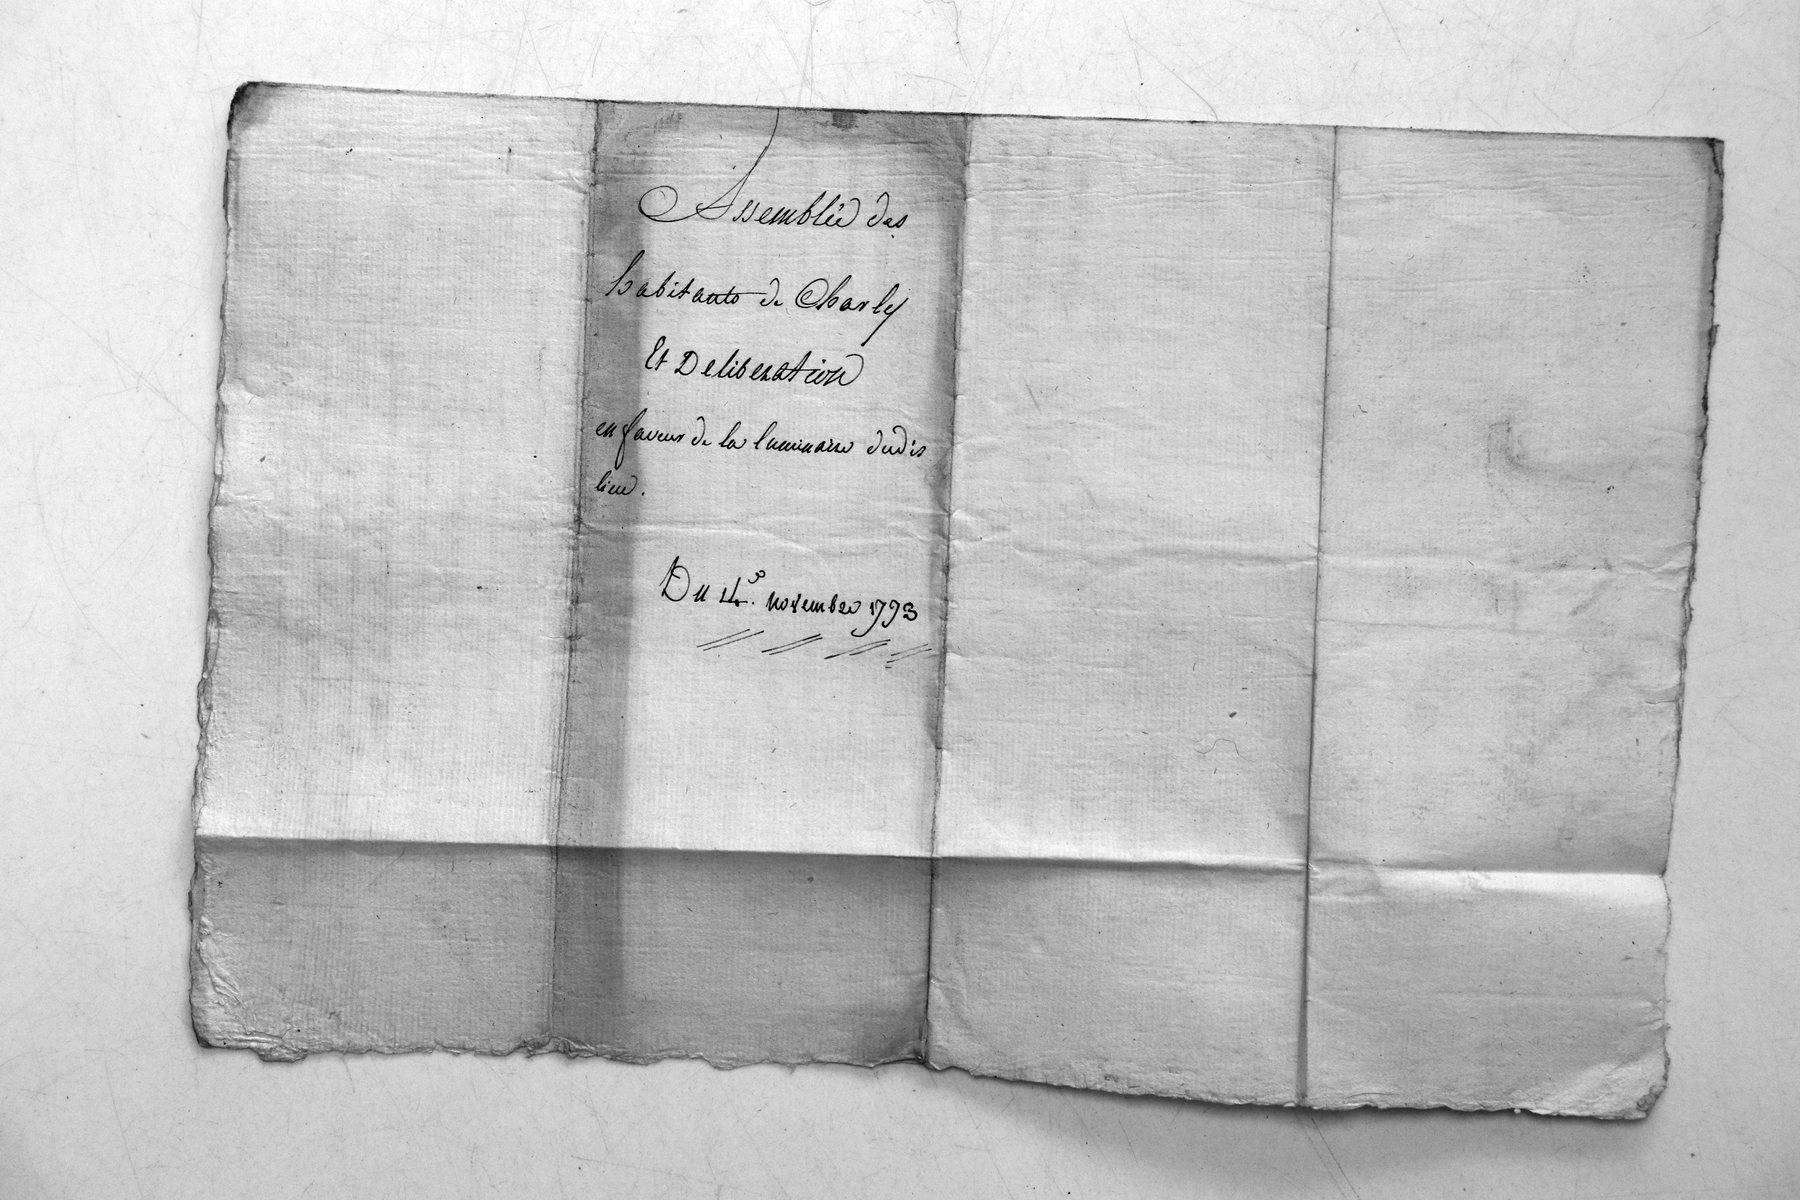 Assemblée des
habitants de Charly
Et Deliberation
en faveur de la luminaire dudit
lieu.
Du 14e. novembre 1773